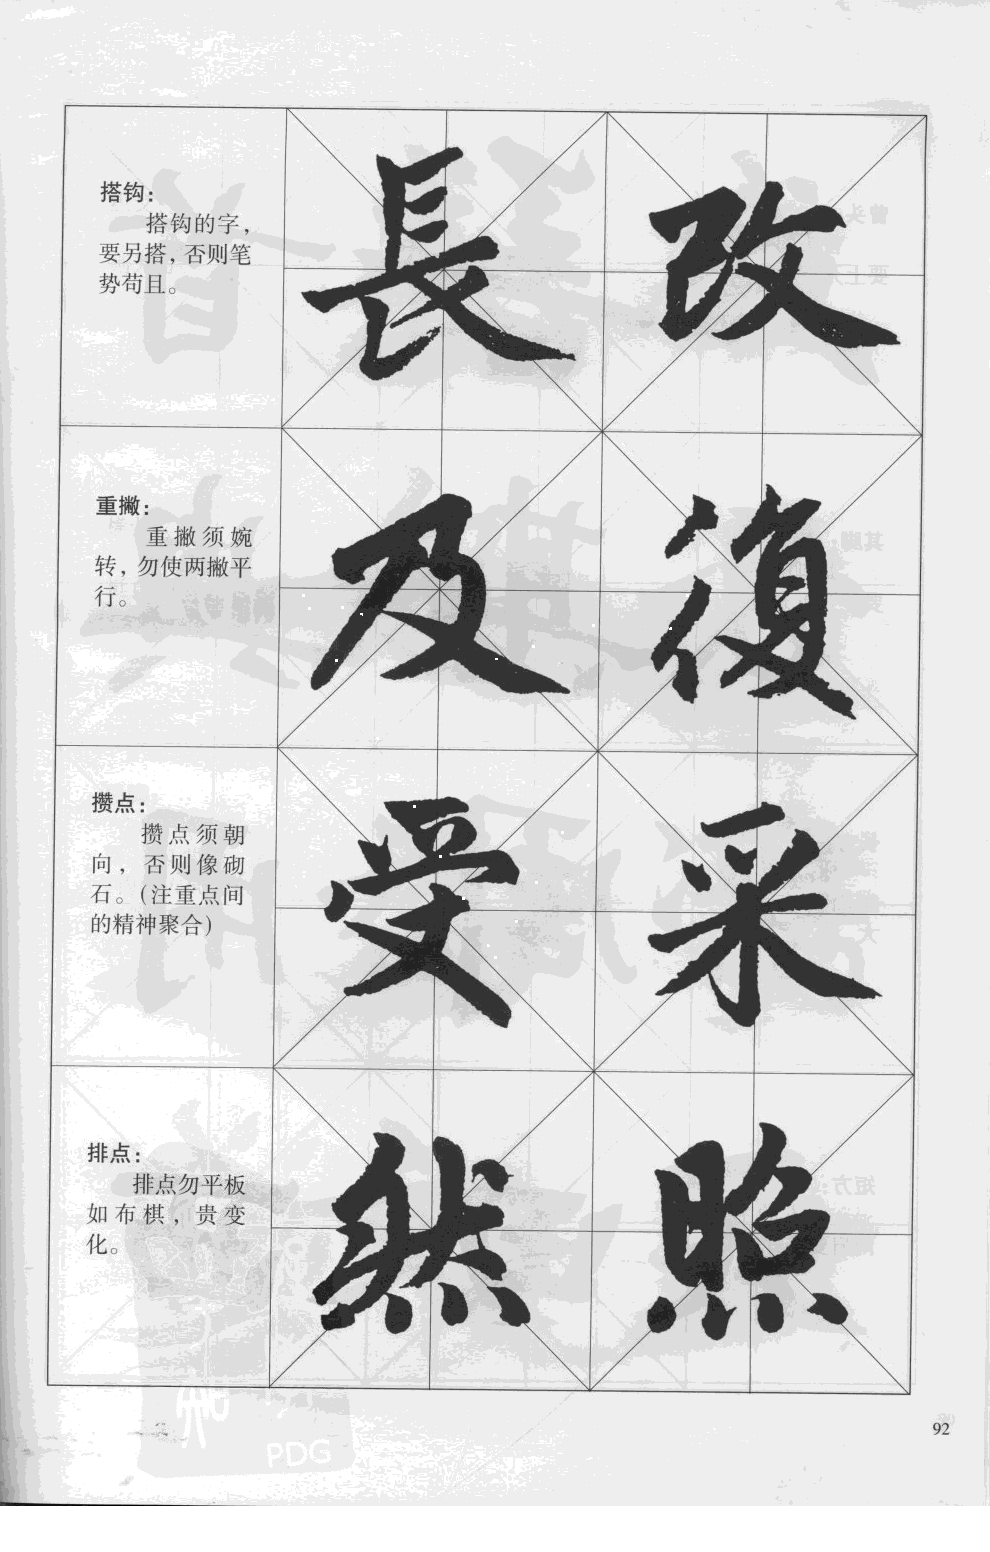 搭钩:
搭钩的字,
要另搭,否则笔
势苟且。
長 改
重撇:
重撇须婉
转,勿使两撇平
行。
及 復
攒点:
攒点须朝
向,否则像砌
石。(注重点间
的精神聚合)
受 采
排点:
排点勿平板
如布棋,贵变
化。
然 照
92
PDG